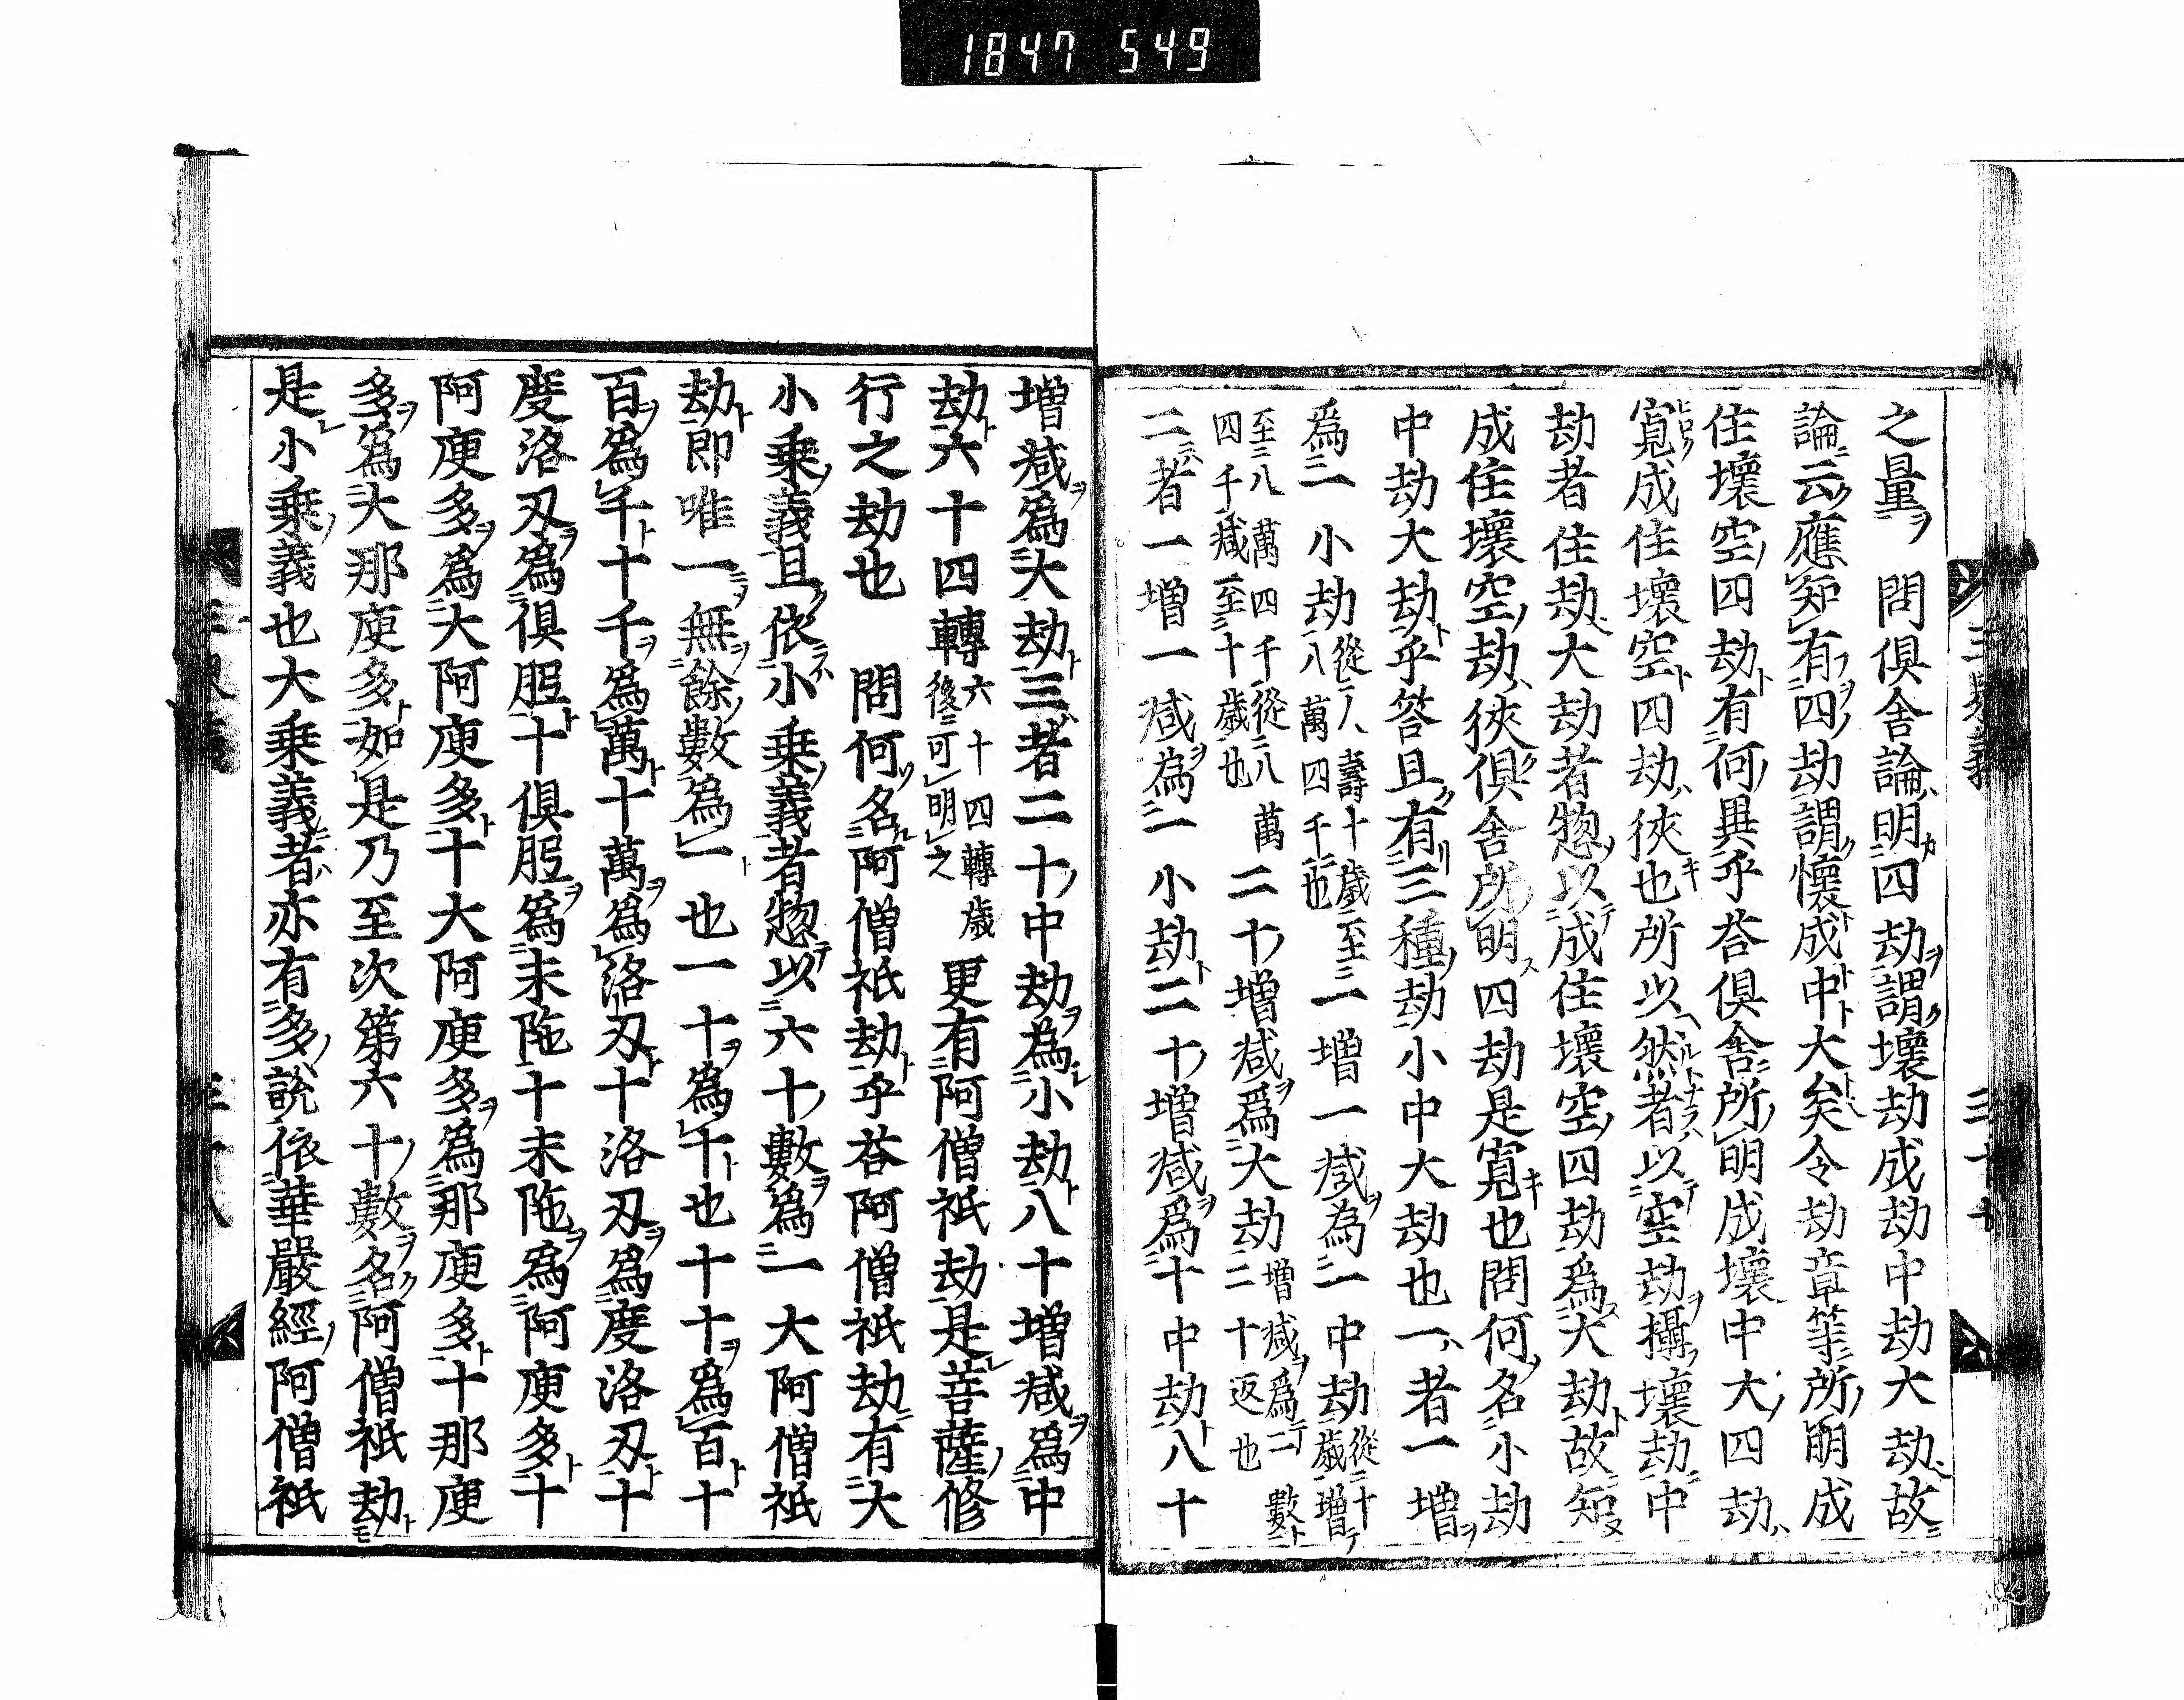 1847 549
之量 問倶舎論明四劫謂壊劫成劫中劫大劫故
論云應知有四劫謂懐成中大矣今劫章等所明成
住壊空四劫有何異乎答倶舎所明成壊中大四劫
寛成住壊空四劫狭也所以然者以空劫攝壊劫中
劫者住劫大劫者惣以成住壊空四劫爲大劫故知
成住壊空劫狭倶舎所明四劫是寛也問何名小劫
中劫大劫乎答且有三種劫小中大劫也一者一増
爲一小劫從人壽十歳至八萬四千也一増一减為一中劫從十歳増
至八萬四千從八萬四千减至十歳也二十増减爲大劫増减爲一數二十返也
二者一増一减為一小劫二十増减爲十中劫八十
増减爲大劫三者二十中劫為小劫八十増减爲中
劫六十四轉六十四轉歳後可明之更有阿僧祇劫是菩薩修
行之劫也 問何名阿僧祇劫乎答阿僧祇劫有大
小乗義且依小乗義者惣以六十數爲一大阿僧祇
劫即唯一無餘數爲一也一十爲十也十十爲百十
百爲千十千爲萬十萬爲洛刃十洛刃爲度洛刃十
度洛刃爲倶胝十倶胝爲末陁十末陁爲阿庾多十
阿庾多爲大阿庾多十大阿庾多爲那庾多十那庾
多爲大那庾多如是乃至次第六十數名阿僧祇劫
是小乗義也大乗義者亦有多說依華嚴經阿僧祇